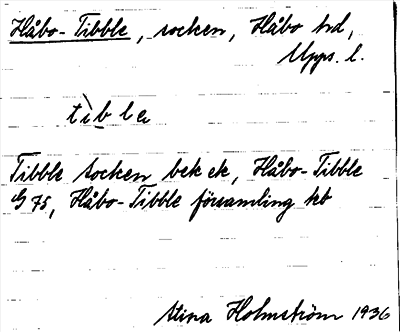 Håbo-Tibble, socken, Håbo hd,
Upps. l.
tìbla
Tibble socken bek ek, Håbo-Tibble
G 75, Håbo-Tibble församling kb
Stina Holmström 1936